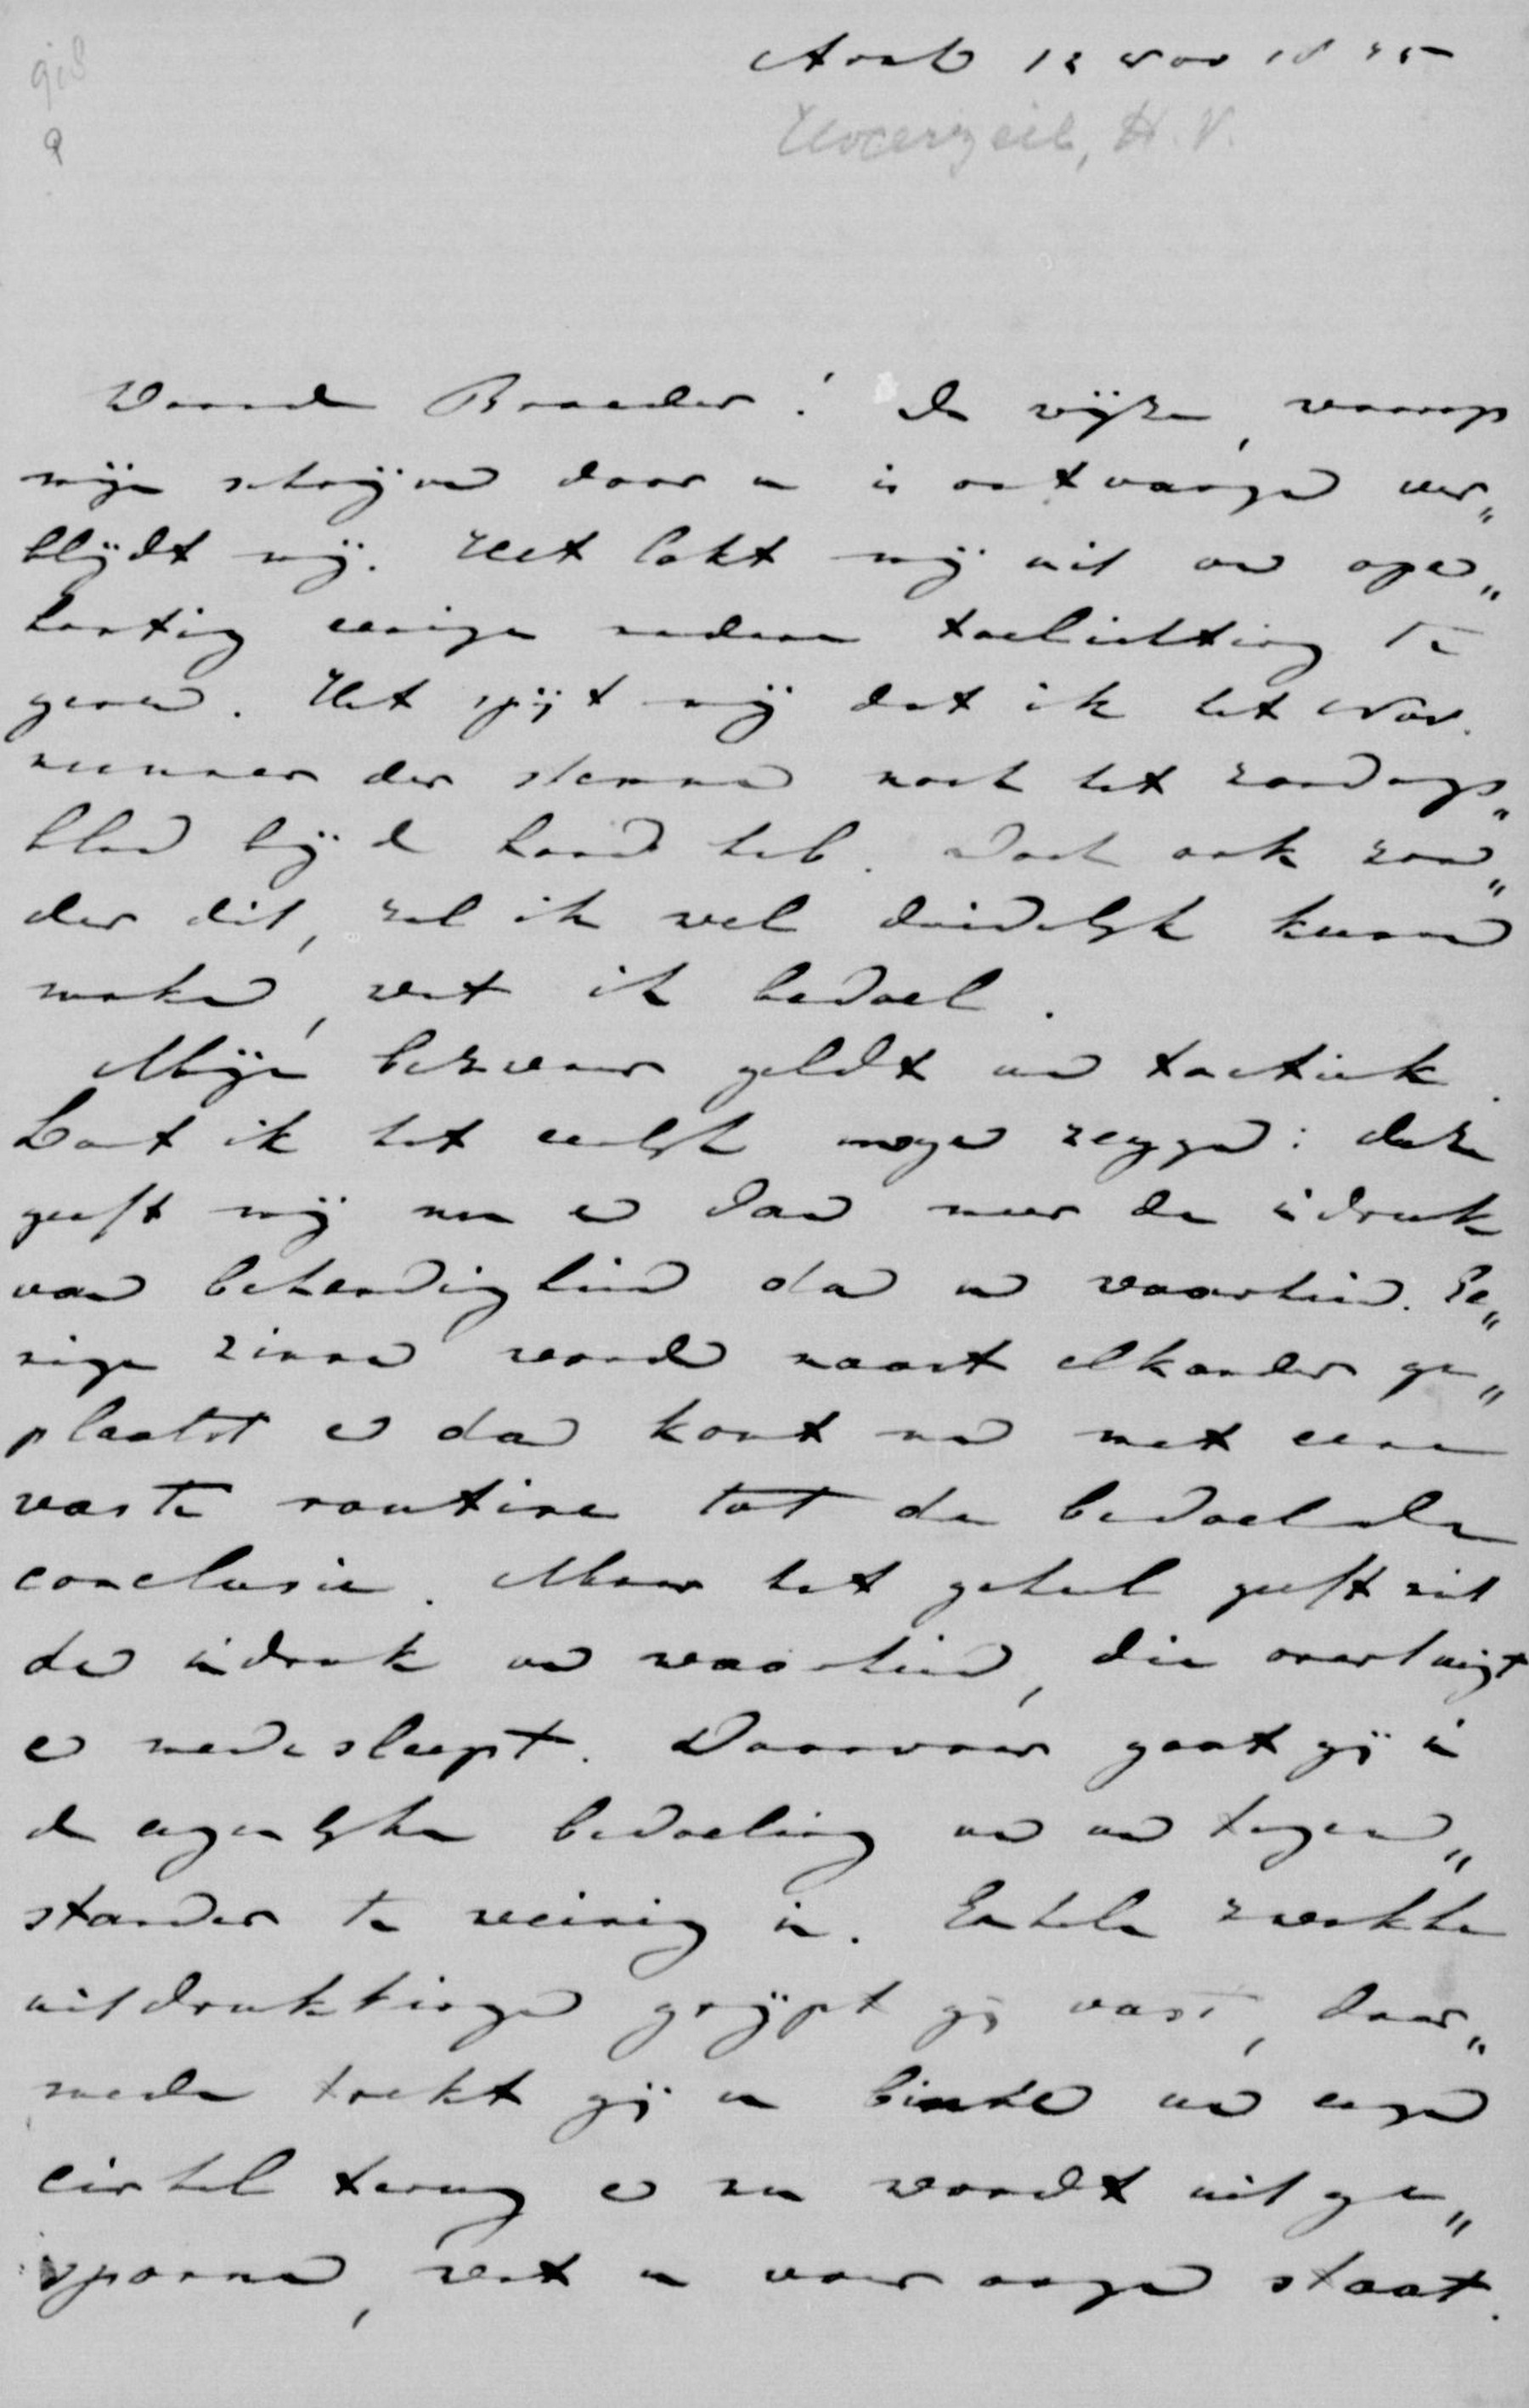 12 Nov 18
H. V.
Waarde Broeder! De wijze, waarop
mijn schrijven door u is ontvangen ver„
blijdt mij. Het lokt mij uit om open„
hartig eenige nadere toelichting te
geven. Het spijt mij dat ik het Nov.
nummer der stemmen noch het zondags„
blad bij de hand heb. Doch ook zon„
der dit, zal ik wel duidelijk kunnen
maken, wat ik bedoel.
Mijn bezwaar geldt uw tactiek.
Laat ik het eerlijk mogen zeggen: deze
geeft mij nu en dan meer den indruk
van behendigheid dan van waarheid. Ee„
nige zinnen worden naast elkander ge„
plaatst en dan komt men met eene
vaste routine tot de bedoelde
conclusie. Maar het geheel geeft niet
den indruk van waarheid, die overtuigt
en medesleept. Daarvoor gaat gij in
de eigenlijke bedoeling van uw tegen„
stander te weinig in. Enkele zwakke
uitdrukkingen grijpt gij vast, daar„
mede trekt gij u binnen uw eigen
cirkel terug en nu wordt uit ge„
sponnen, wat u voor oogen staat.